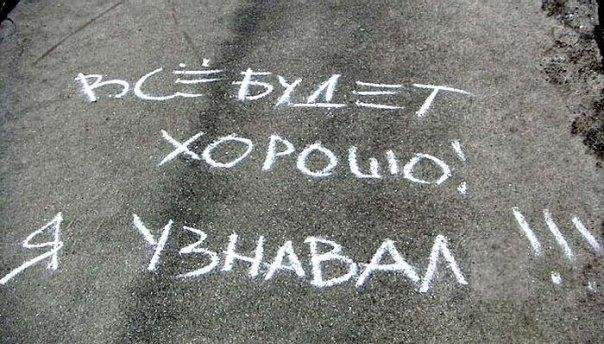 ВСЁ БУДЕТ
ХОРОШО!
Я УЗНАВАЛ!!!